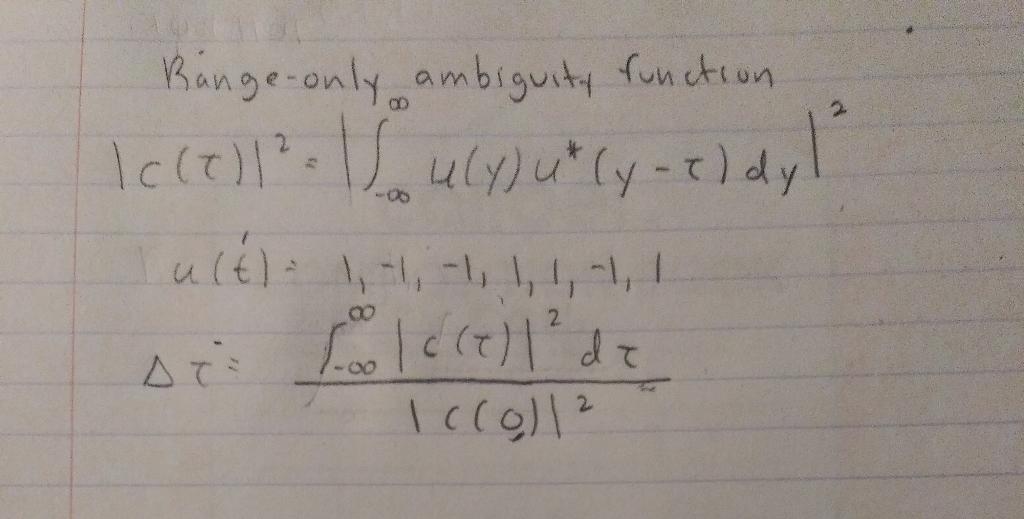 Range-only ambiguity function
|c(τ)|² = |∫_{-∞}^{∞} u(y)u*(y-τ)dy|²
u(t) = 1, -1, -1, 1, 1, -1, 1
Δτ = ∫_{-∞}^{∞} |c(τ)|² dτ / |c(0)|²